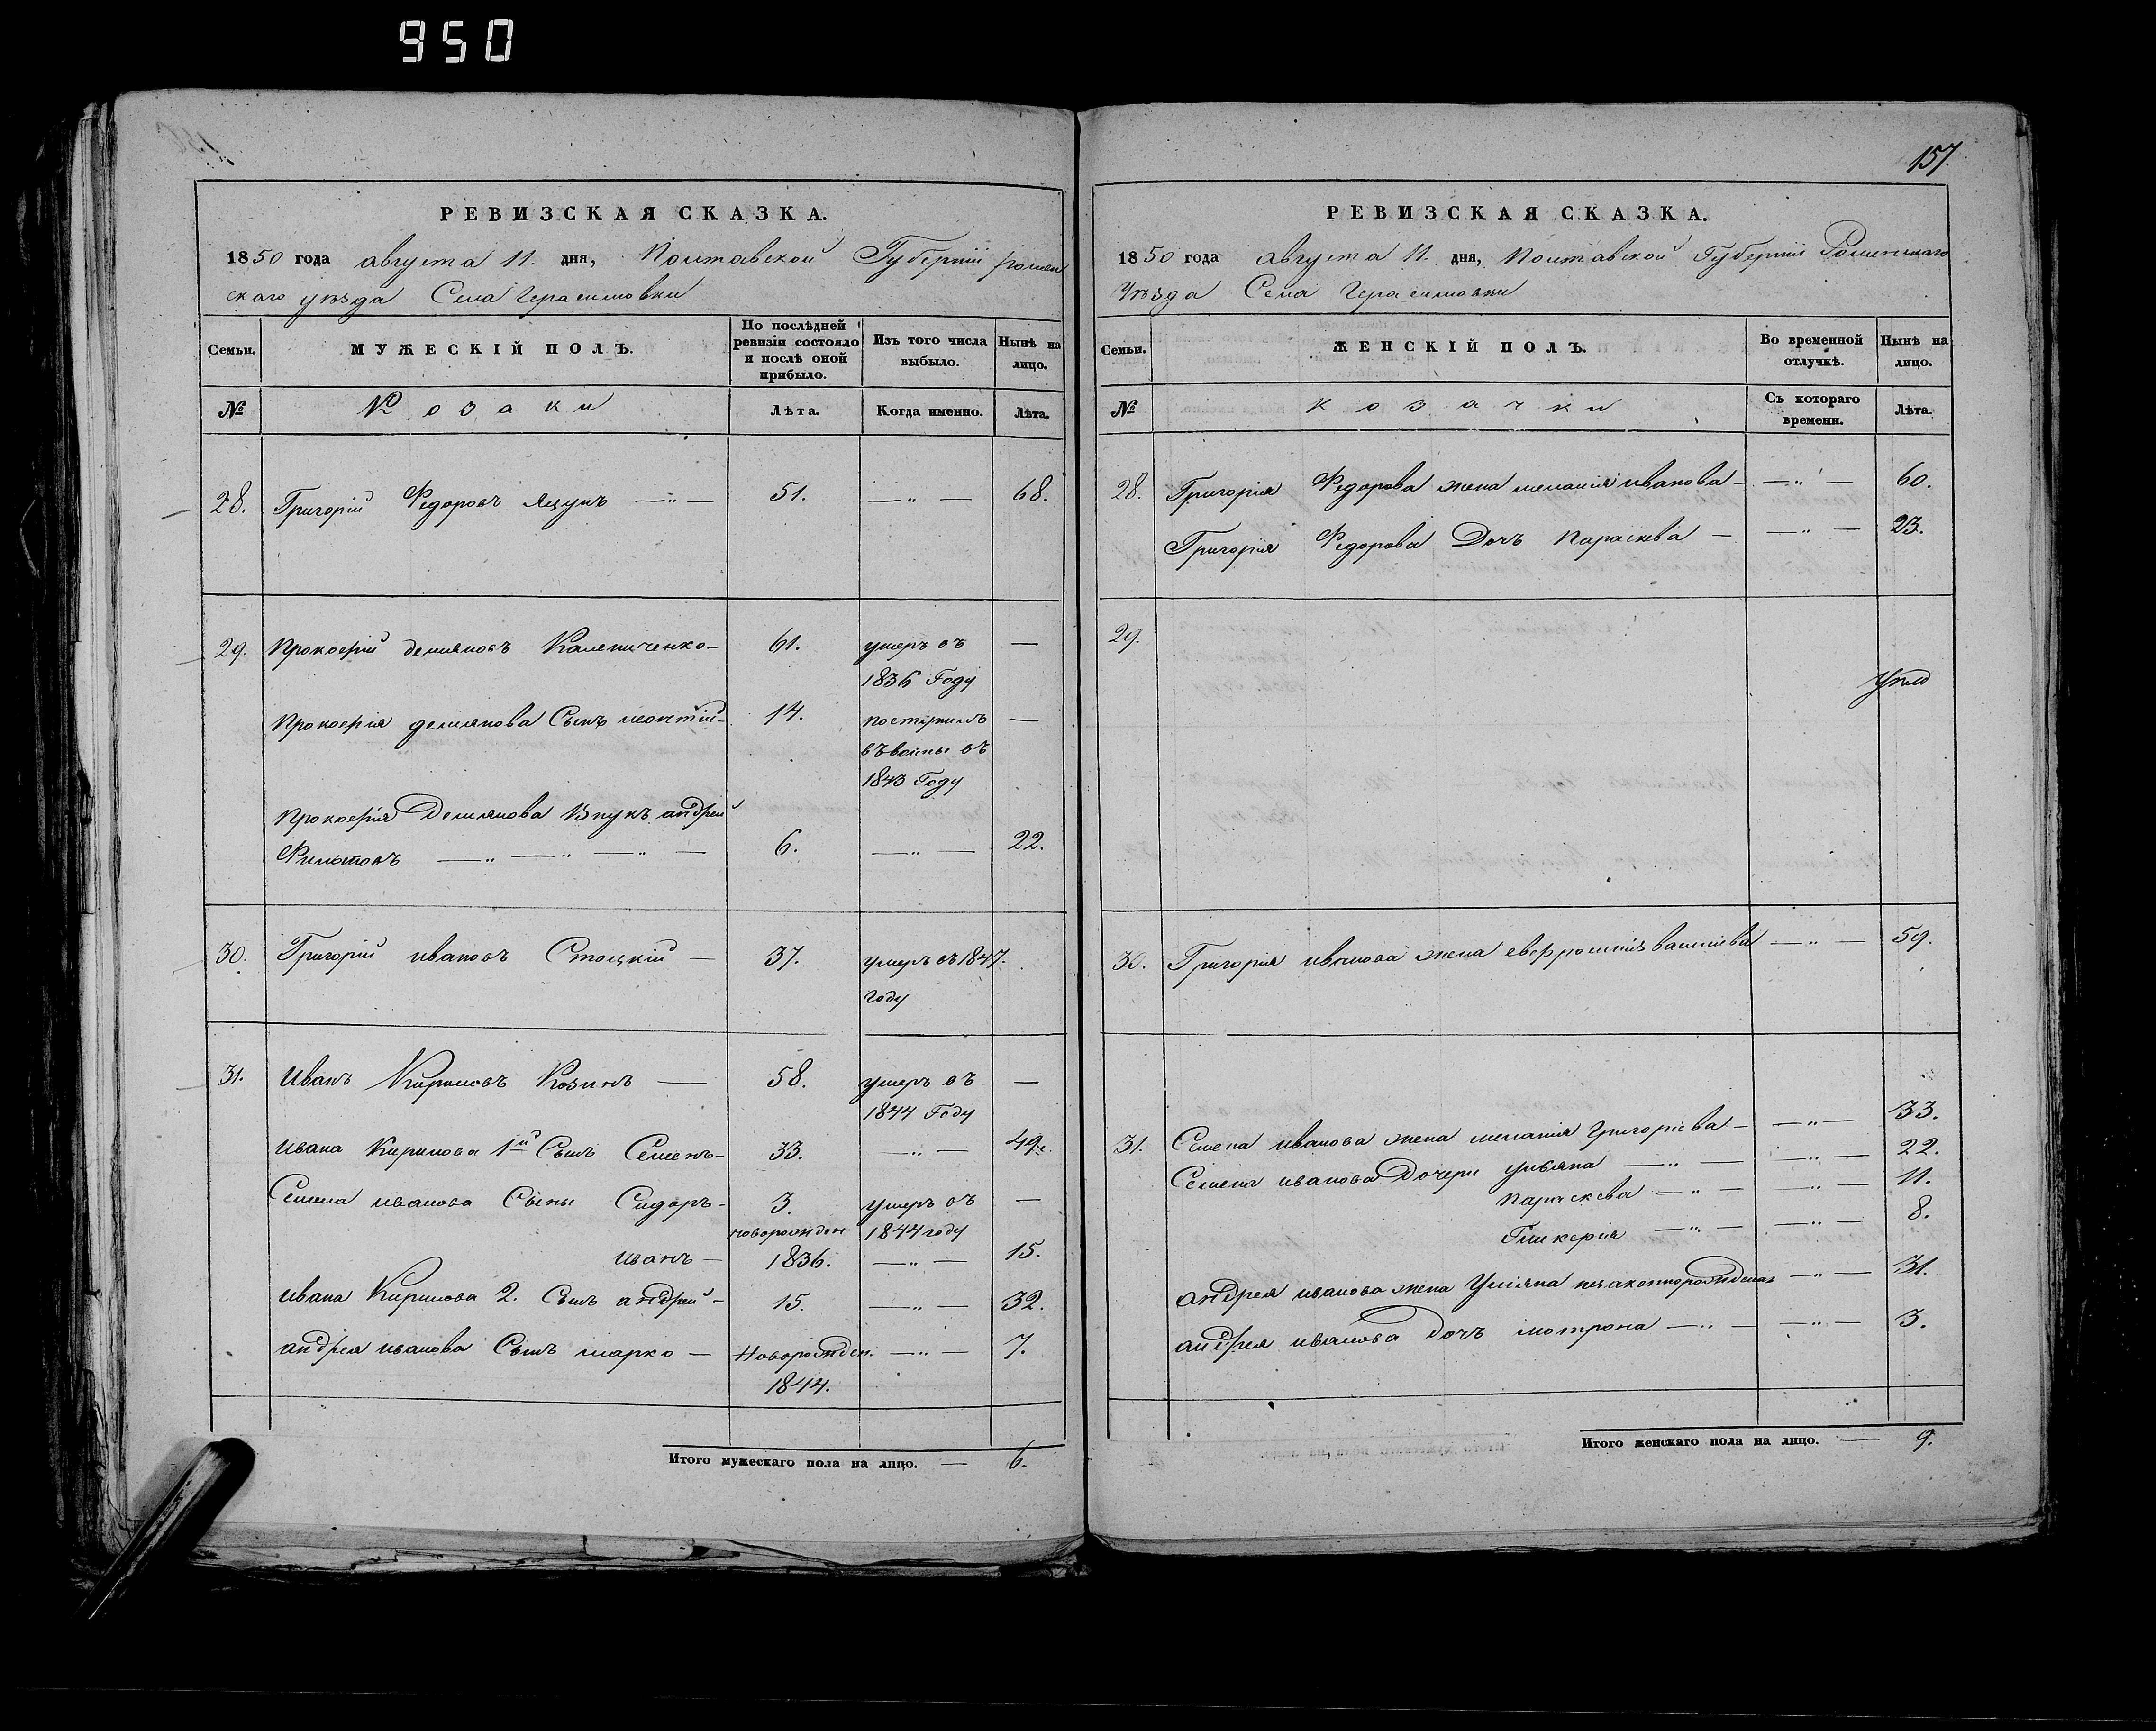 950
РЕВИЗСКАЯ СКАЗКА.
1850 года августа 11. дня, Полтавской Губернии ромен
скаго уезда Села Герасимовки
Семьи. МУЖЕСКІЙ ПОЛЪ. По послѣдней ревизіи состояло и послѣ оной прибыло. Изъ того числа выбыло. Нынѣ на лицо.
№ Козаки Лѣта. Когда именно. Лѣта.
28. Григорій Федоровъ Яцунъ — 51. — 68.
29. Прокофій демяновъ — 61. умеръ въ —
1836 Году
Прокофія демянова Сынъ леонтій — 14. поступилъ —
въ 1843 Году
Прокофія Демянова Внукъ андрей
Филатовъ — 6. — 22.
30. Григорій ивановъ Стоцкій — 37. умеръ въ 1847.
году
31. Иванъ Кириловъ Козинъ — 58. умеръ въ —
1844 Году
ивана Кирилова 1й Сынъ Семенъ — 33. — 49.
Семена иванова Сыны Сидоръ — 3. умеръ въ —
новорожден 1844 году
иванъ — 1836. — 15.
ивана Кирилова 2. Сынъ андрей — 15. — 32.
андрея иванова Сынъ марко — Новорожден. — 7.
1844.
Итого мужескаго пола на лицо. — 6.
157.
РЕВИЗСКАЯ СКАЗКА.
1850 года августа 11. дня, Полтавской Губернии Роменскаго
Уезда Села Герасимовки
Семьи. ЖЕНСКІЙ ПОЛЪ. Во временной отлучкѣ. Нынѣ на лицо.
№ козачки Съ котораго времени. Лѣта.
28. Григорія Федорова жена меланія иванова — 60.
Григорія Федорова Дочъ Параскева — 23.
29.
30. Григорія иванова жена евфросинія — 59.
31. Семена иванова жена меланія Григоріева — 33.
Семена иванова Дочери улияна — 22.
параскева — 11.
Гликерія — 8.
андрея иванова жена Улияна незаконнорожденая — 31.
андрея иванова дочъ мотрона — 3.
Итого женскаго пола на лицо. — 9.